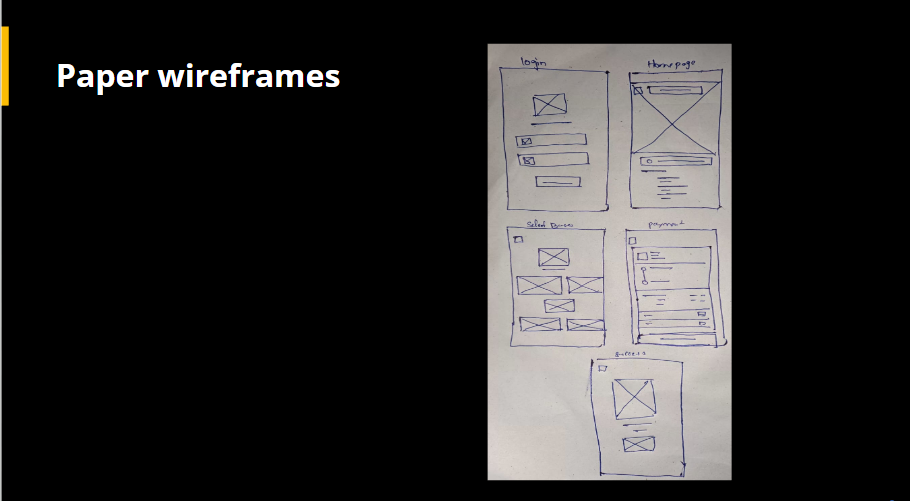 Paper wireframes
login
Homepage
Select
payment
success